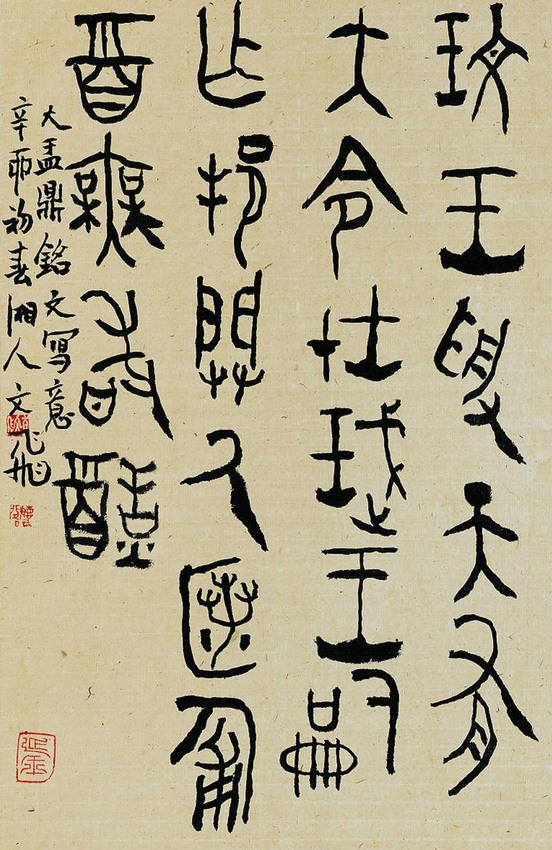 玟王受天有
大令在珷王嗣
乍邦闢氒匿匍
大盂鼎銘文寫意
辛卯初春湘人文飛